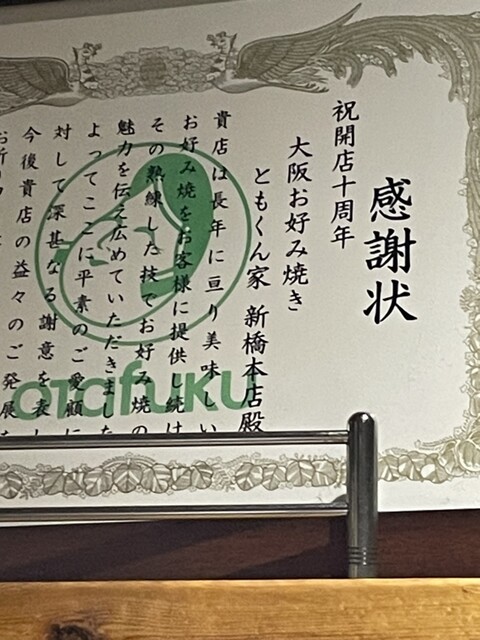 感謝状
祝開店十周年
大阪お好み焼き
ともくん家 新橋本店殿
貴店は長年に亘り美味しい
お好み焼をお客様に提供し続け
その熟練した技でお好み焼の
魅力を伝え広めていただきました
よってここに平素のご愛顧に
対して深甚なる謝意を表し
今後貴店の益々のご発展を
お祈り
otafuku